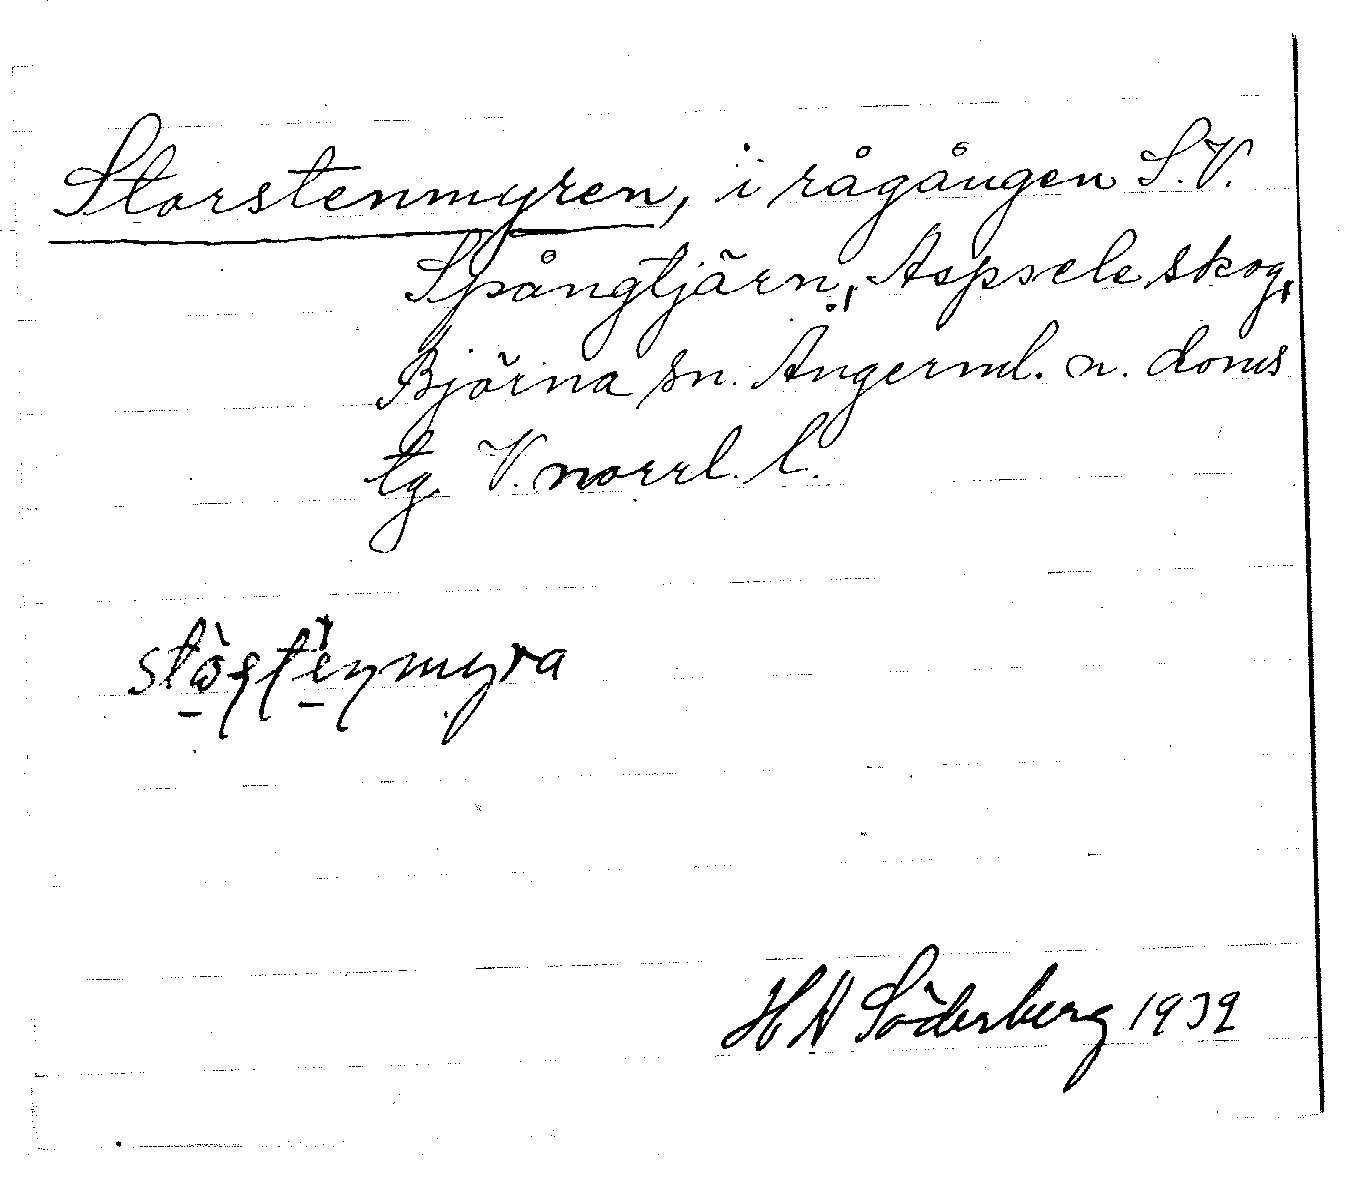 Storstenmyren, i rågången S.V.
Spångtjärn, Aspsele skog,
Björna sn. Ångerml. n. doms
tg. V. norrl. l.
H N Söderberg 1939